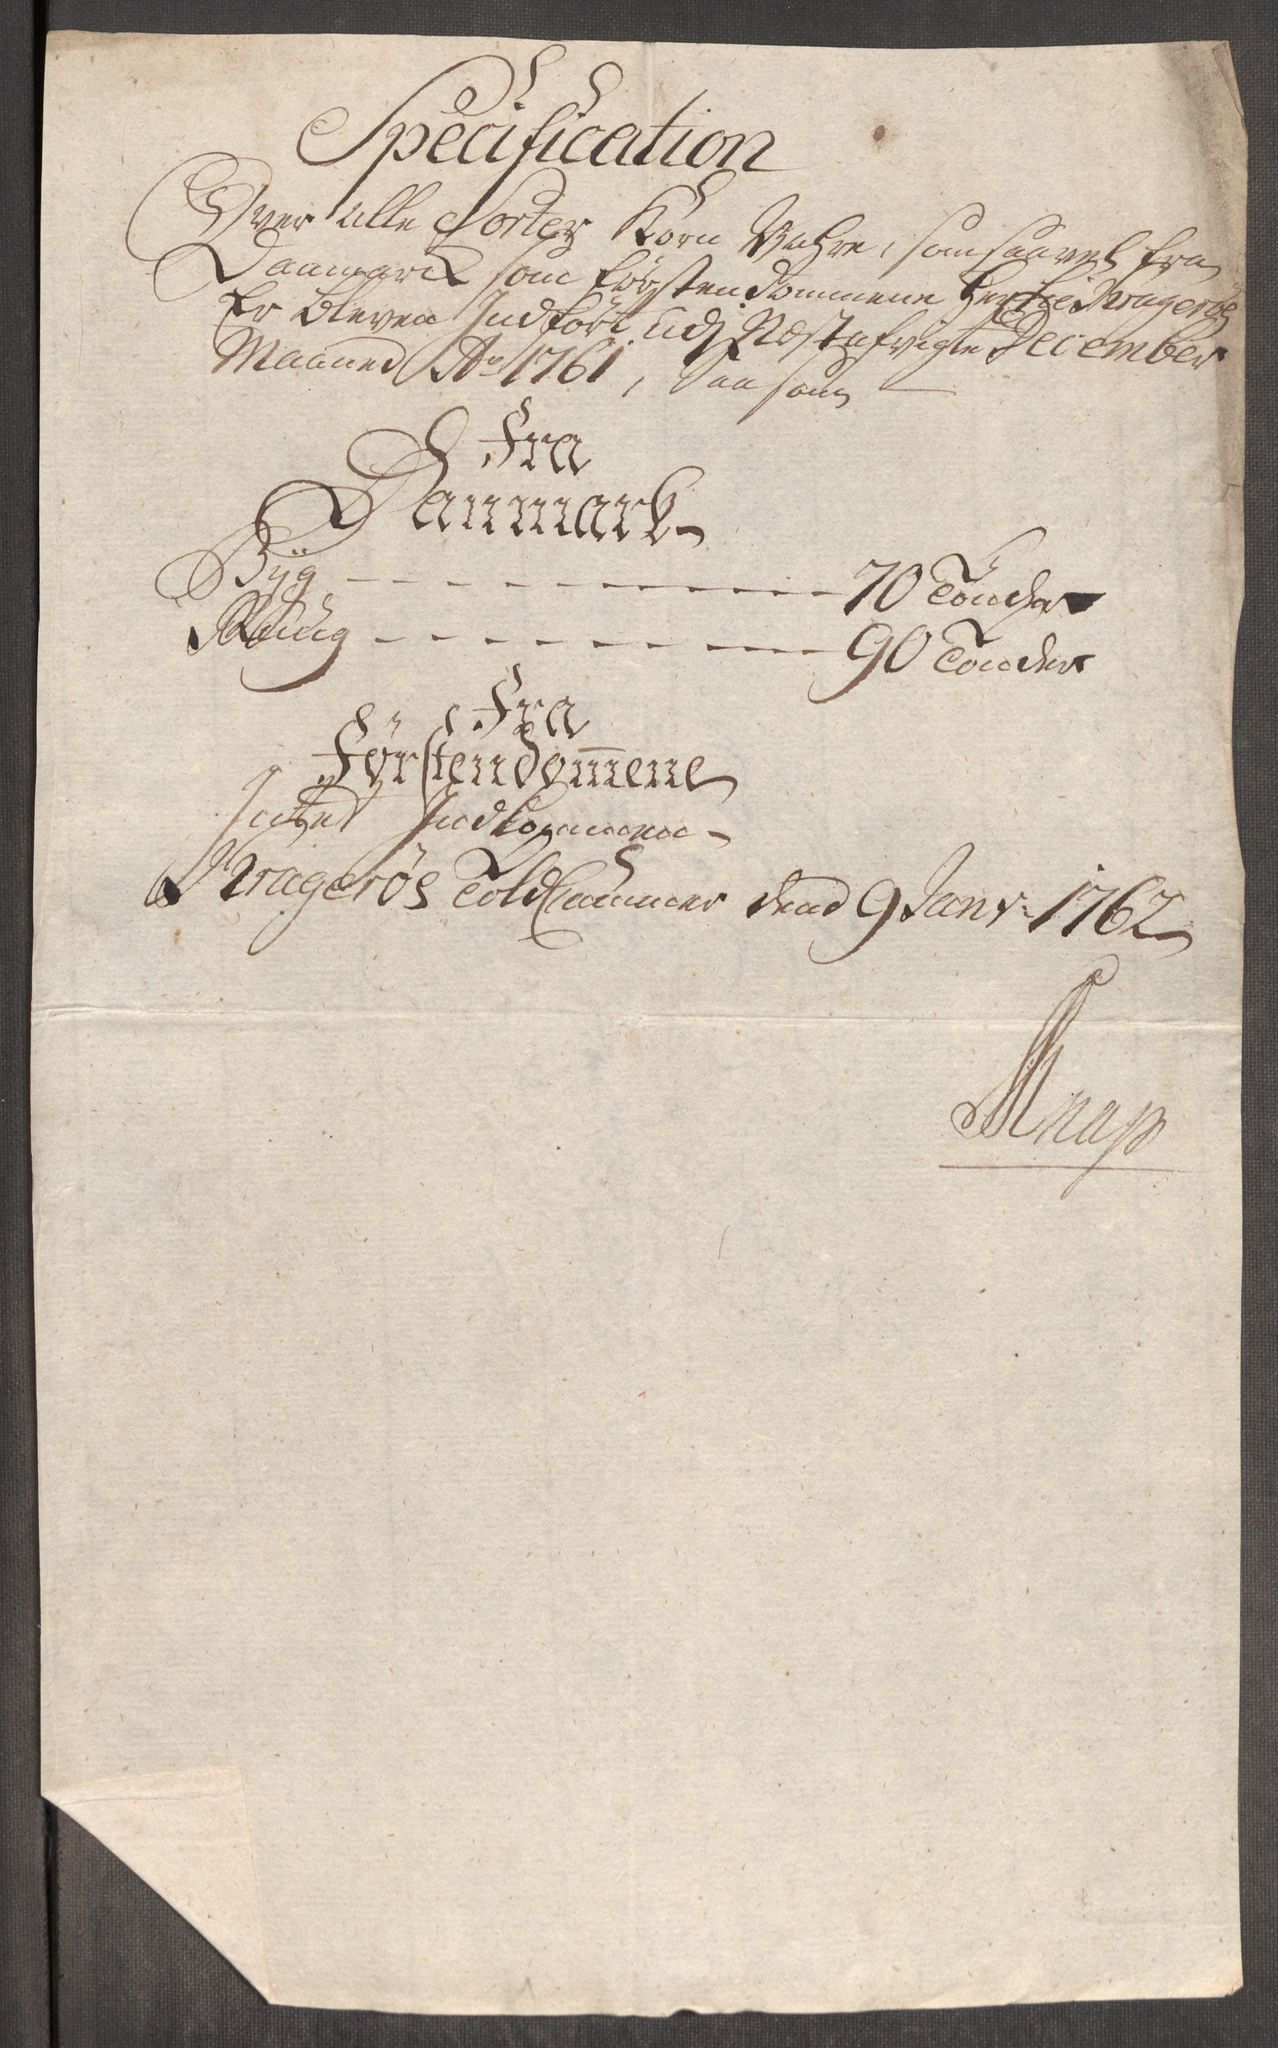 Specification
Over alle Sorter Korn Vahre, som saavel fra
Danmarck som förstendommene her til Kragerøe
Er bleven Indfört udj Næstafvigte December
Maaned Ao 1761, saasom
Fra
Danmark
Byg 70 Tönder
Rug 90 Tönder
Fra
Førstendom̅ene
Intet Indkommen
Kragerös Told Cammer dend 9 Janv: 1762
Knap